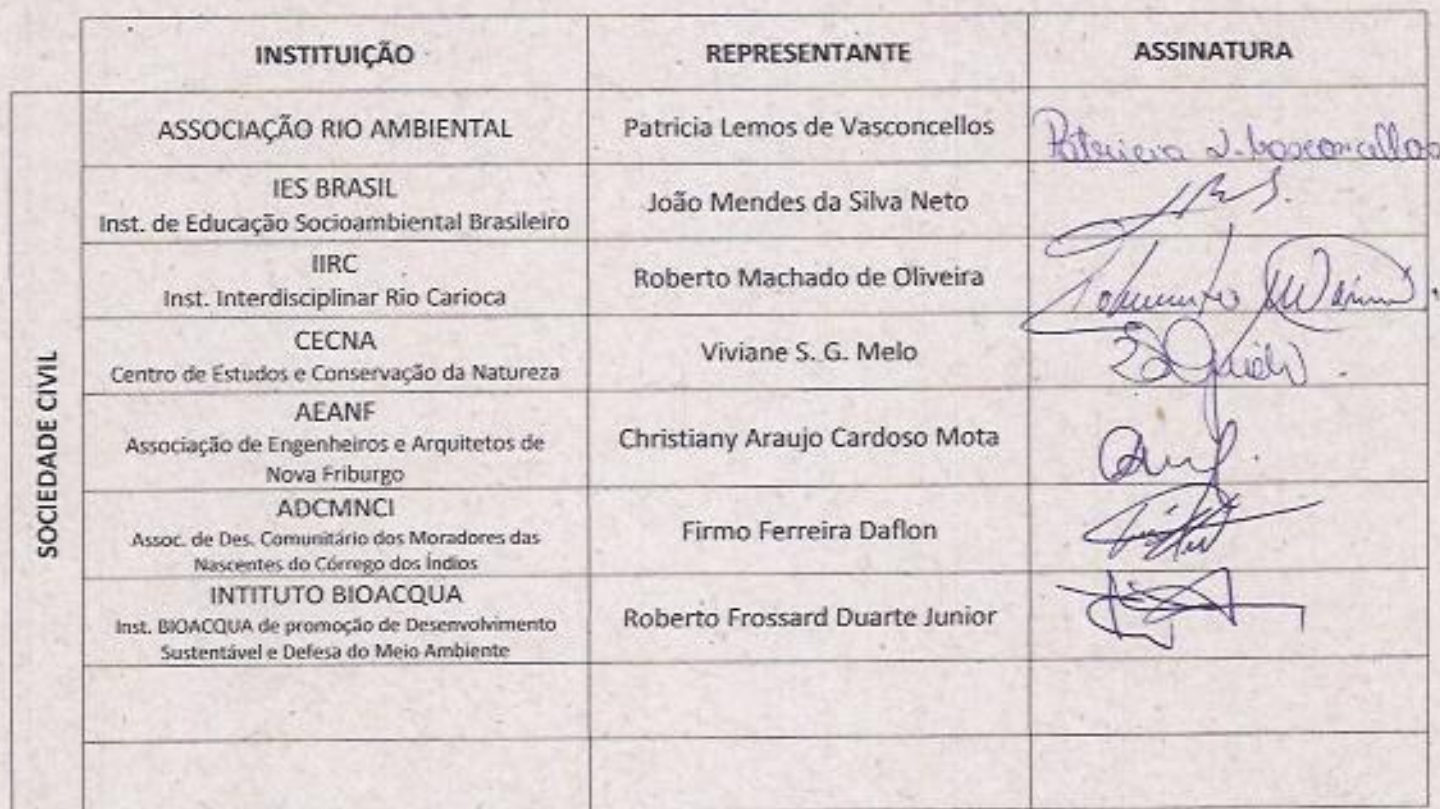 INSTITUIÇÃO REPRESENTANTE ASSINATURA
SOCIEDADE CIVIL
ASSOCIAÇÃO RIO AMBIENTAL Patricia Lemos de Vasconcellos Patricia L. Vasconcellos
IES BRASIL
Inst. de Educação Socioambiental Brasileiro
João Mendes da Silva Neto
IIRC
Inst. Interdisciplinar Rio Carioca
Roberto Machado de Oliveira
CECNA
Centro de Estudos e Conservação da Natureza
Viviane S. G. Melo
AEANF
Associação de Engenheiros e Arquitetos de
Nova Friburgo
Christiany Araujo Cardoso Mota
ADCMNCI
Assoc. de Des. Comunitário dos Moradores das
Nascentes do Córrego dos Índios
Firmo Ferreira Daflon
INTITUTO BIOACQUA
Inst. BIOACQUA de promoção de Desenvolvimento
Sustentável e Defesa do Meio Ambiente
Roberto Frossard Duarte Junior